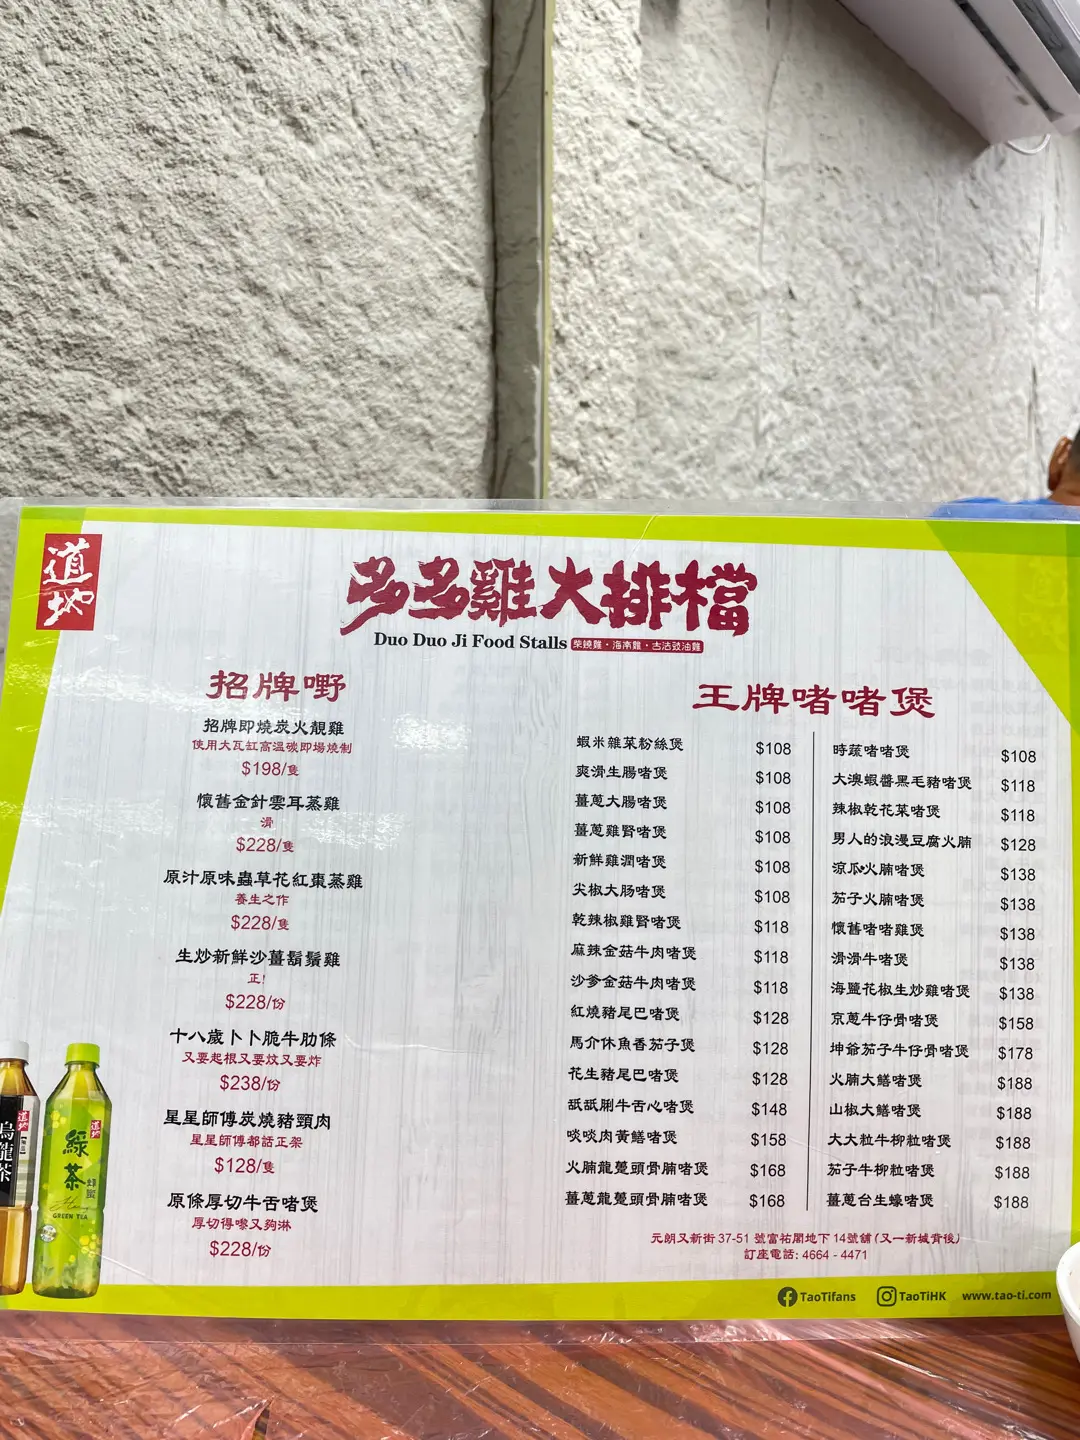 道地
多多雞大排檔
Duo Duo Ji Food Stalls 柴燒雞・海南雞・古法豉油雞
招牌嘢
招牌即燒炭火靚雞
使用大瓦缸高溫碳即場燒制
$198/隻
懷舊金針雲耳蒸雞
滑
$228/隻
原汁原味蟲草花紅棗蒸雞
養生之作
$228/隻
生炒新鮮沙薑鬍鬚雞
正!
$228/份
十八歲卜卜脆牛肋條
又要起根又要炆又要炸
$238/份
星星師傅炭燒豬頸肉
星星師傅都話正架
$128/隻
原條厚切牛舌啫煲
厚切得嚟又夠淋
$228/份
王牌啫啫煲
蝦米雜菜粉絲煲 $108
爽滑生腸啫煲 $108
薑蔥大腸啫煲 $108
薑蔥雞腎啫煲 $108
新鮮雞潤啫煲 $108
尖椒大肠啫煲 $108
乾辣椒雞腎啫煲 $118
麻辣金菇牛肉啫煲 $118
沙爹金菇牛肉啫煲 $118
紅燒豬尾巴啫煲 $128
馬介休魚香茄子煲 $128
花生豬尾巴啫煲 $128
舐舐脷牛舌心啫煲 $148
啖啖肉黃鱔啫煲 $158
火腩龍躉頭骨腩啫煲 $168
薑蔥龍躉頭骨腩啫煲 $168
時蔬啫啫煲 $108
大澳蝦醬黑毛豬啫煲 $118
辣椒乾花菜啫煲 $118
男人的浪漫豆腐火腩 $128
涼瓜火腩啫煲 $138
茄子火腩啫煲 $138
懷舊啫啫雞煲 $138
滑滑牛啫煲 $138
海鹽花椒生炒雞啫煲 $138
京蔥牛仔骨啫煲 $158
坤爺茄子牛仔骨啫煲 $178
火腩大鱔啫煲 $188
山椒大鱔啫煲 $188
大大粒牛柳粒啫煲 $188
茄子牛柳粒啫煲 $188
薑蔥台生蠔啫煲 $188
元朗又新街 37-51 號富祐閣地下 14號舖 (又一新城背後)
訂座電話: 4664 - 4471
TaoTifans TaoTiHK www.tao-ti.com
道地
烏龍茶
道地
綠茶
蜂蜜
GREEN TEA